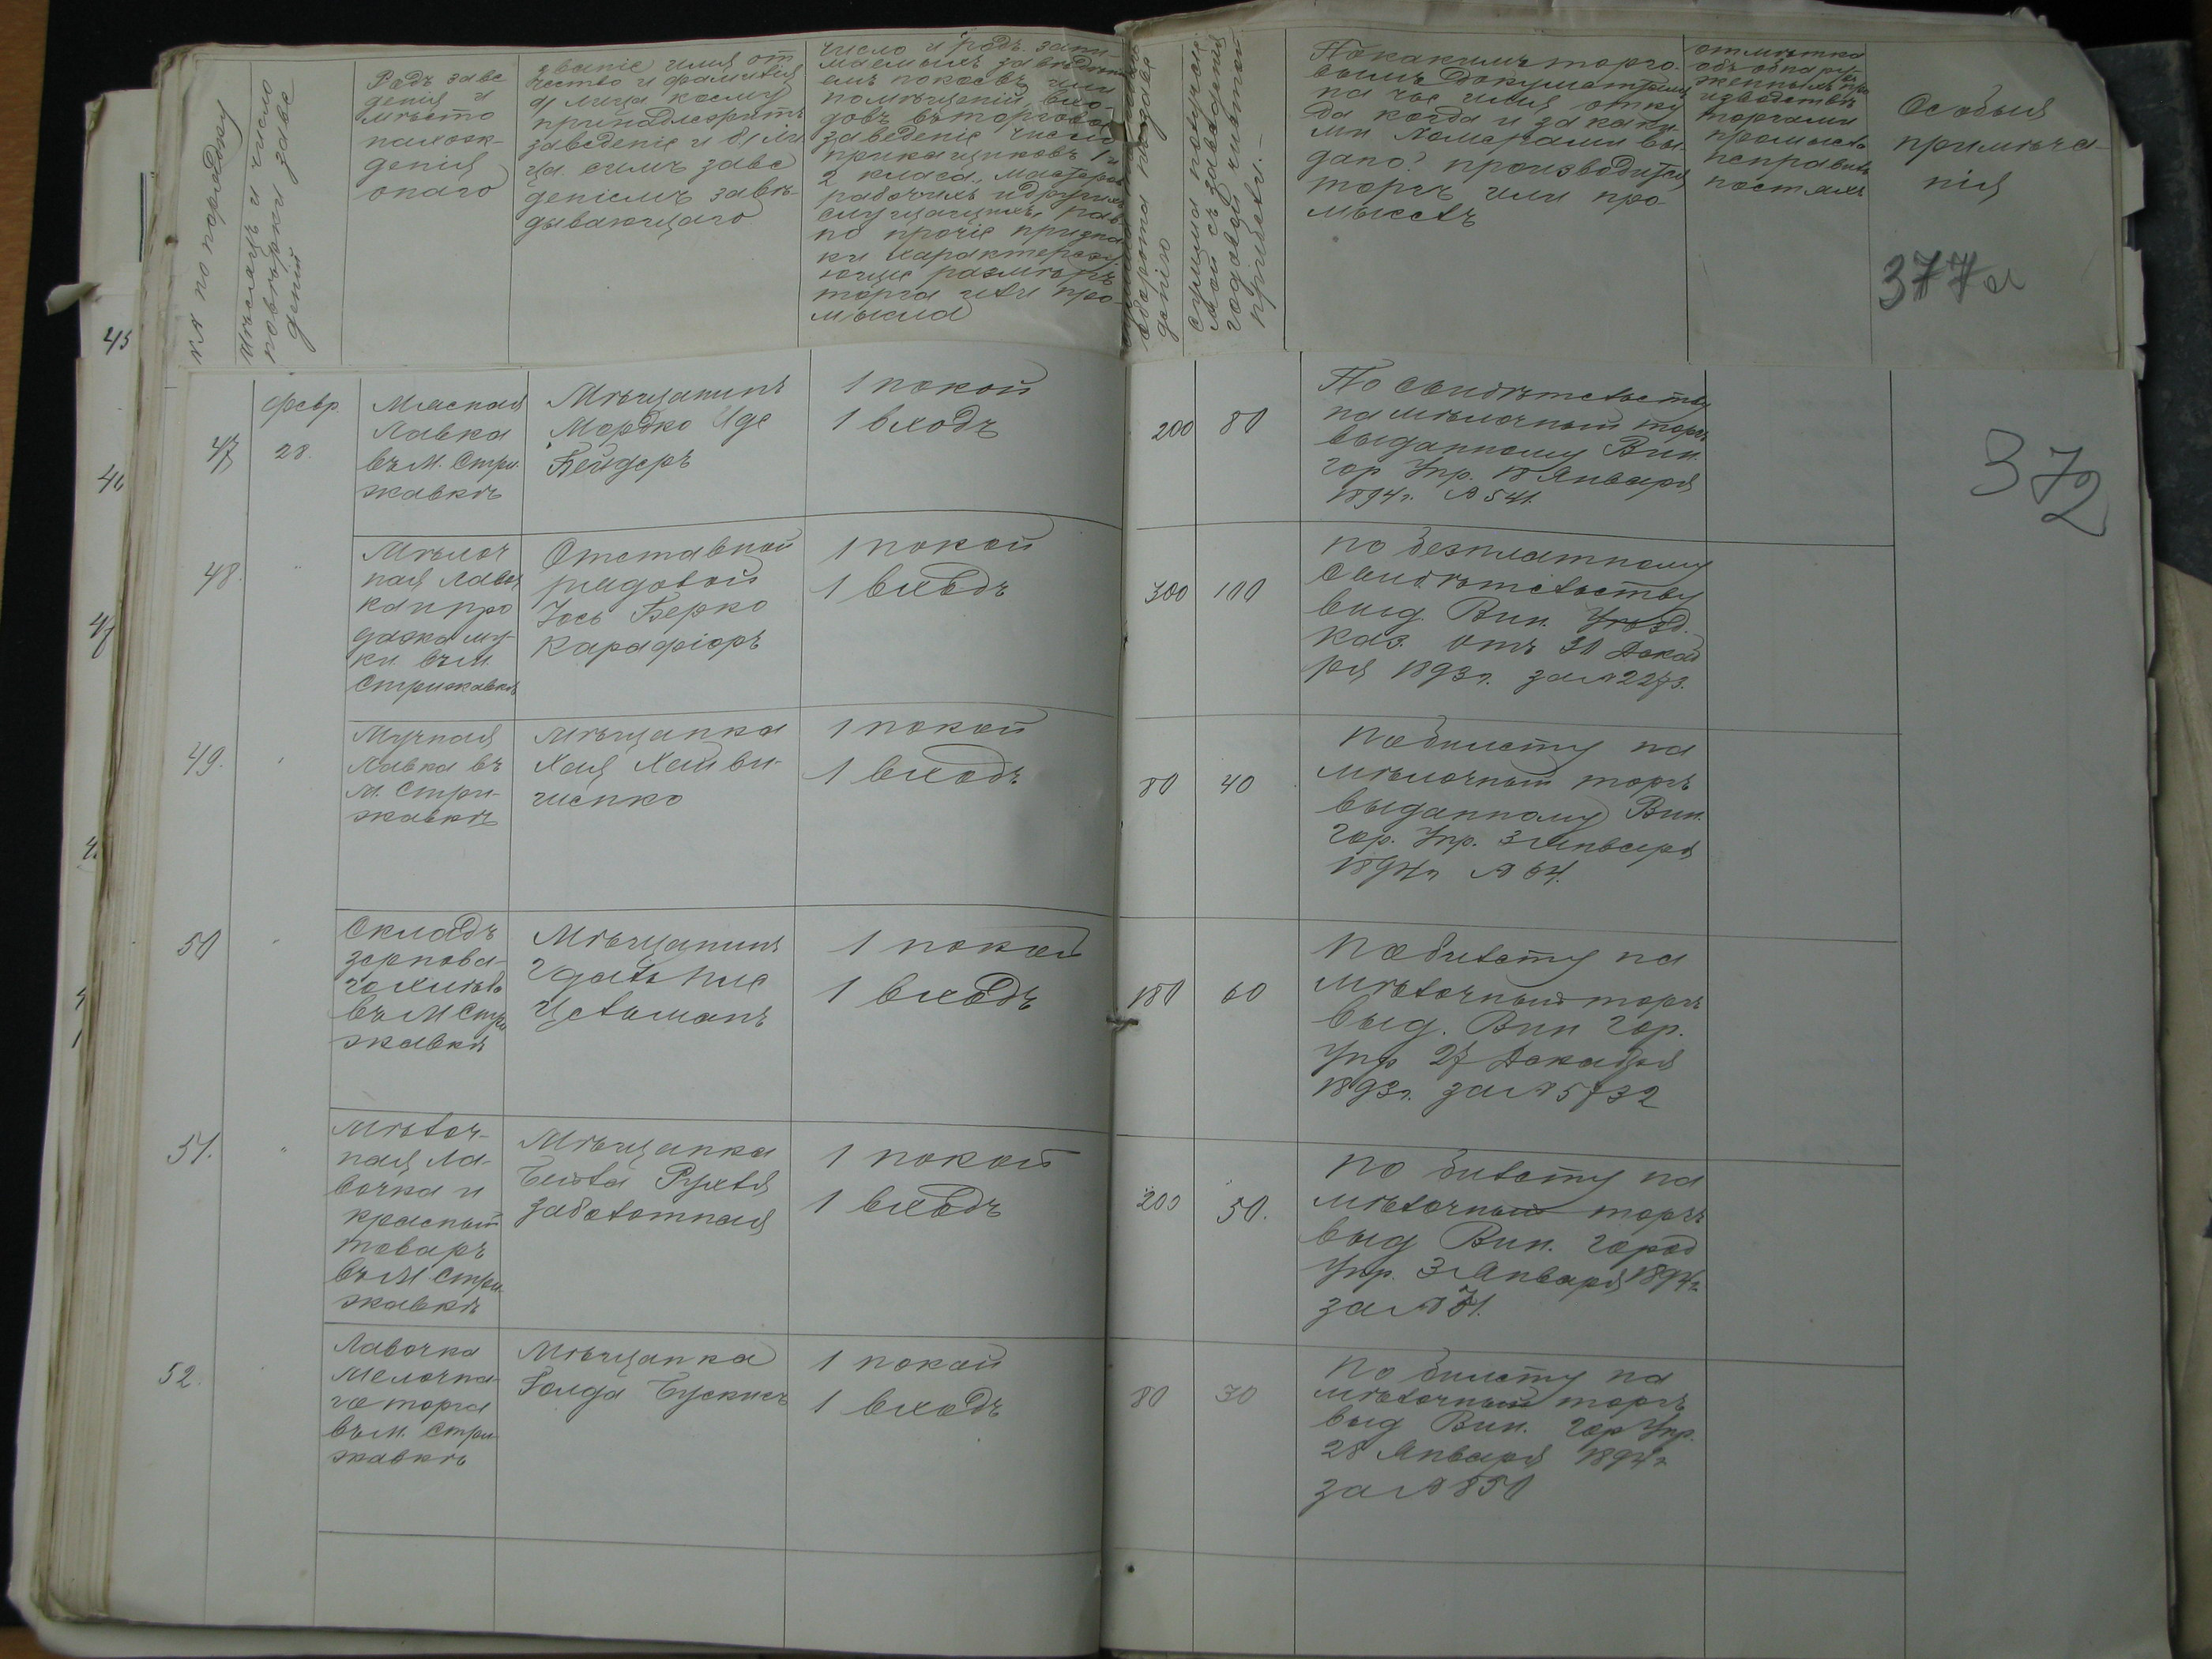 45
46
47
№№ по порядку
Мѣсяцъ и число
повѣрки заве
деній
Родъ заве
денія и
мѣсто
нахож-
денія
онаго
званіе имя от
чество и фамилія
а/ лица коему
принадлежитъ
заведеніе и б/ ли
ца симъ заве
деніемъ завѣ-
дывающаго
число и родъ зани
маемыхъ заведені
емъ покоевъ или
помѣщеній, вхо-
довъ въ торговое
заведеніе число
прикащиковъ 1 и
2 класа, мастеровъ
рабочихъ и другихъ
служащихъ, рав
но прочіе призна
ки характеризу
ющіе размѣръ
торга или про-
мысла
оборота по заве
денію
сумма получае
мой съ заведенія
годовой чистой
прибыли.-
По какимъ торго-
вымъ документамъ
на чье имя отку
да когда и за каки
ми номерами вы
дано? производится
торгъ или про-
мыслъ
отмѣтка
объ обнару
женныхъ при
изводствѣ
торгами
промысла
неправиль
ностяхъ
Особыя
примѣча-
нія
377а
372
47
февр.
28.
Мясная
Лавка
въ М. Стри-
жавкѣ
Мѣщанинъ
Мордко Иде
Бейдеръ
1 покой
1 входъ
200
80
По свидѣтельству
на мѣлочный торгъ
выданному Вин.
гор Упр. 18 Января
1894г. № 541.
48.
Мѣлоч
ная лавоч
ка и про
дажа му-
ки въ М.
Стрижавкѣ
Отставной
рядовой
Іось Берко
Карафіоръ
1 покой
1 входъ
300
100
по безплатному
свидѣтельству
выд. Вин. Уѣзд.
каз. отъ 30 Декаб
ря 1893г. за № 2273.
49.
Мучная
лавка въ
М. Стри-
жавкѣ
Мѣщанка
Хая Хайви-
ниченко
1 покой
1 входъ
80
40
По билету на
мѣлочный торгъ
выданному Вин.
Гор. Упр. 3 Января
1894г № 64.
50
Складъ
зернова-
го хлѣба
въ М Стри
жавкѣ
Мѣщанинъ
Цельманъ
1 покой
1 входъ
180
60
По билету на
мѣлочный торгъ
выд. Вин Гор.
Упр 27 Декабря
1893г. за № 5732
51.
Мѣлоч-
ная ла-
вочка и
красный
товаръ
въ М. Стри-
жавкѣ
Мѣщанка
Бейла Рухля
Заболотная
1 покой
1 входъ
200
50.
по билету на
мѣлочный торгъ
выд Вин. город
Упр. 3 Января 1894г
за № 71.
52.
Лавочка
Мелочна-
го торга
въ М. Стри-
жавкѣ
Мѣщанка
Голда Бускисъ
1 покой
1 входъ
80
30
По билету на
мѣлочный торгъ
выд Вин. Гор Упр.
28 Января 1894г
за № 850